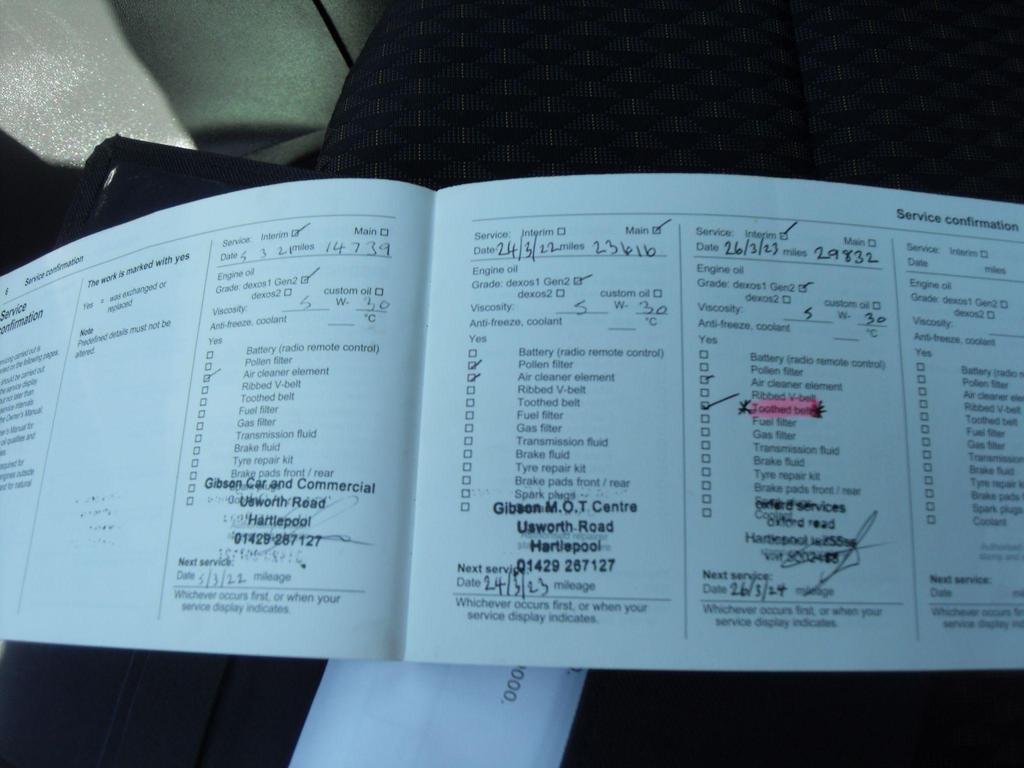 6 Service confirmation
Service
confirmation
The work is marked with yes
Yes = was exchanged or
replaced
Note
Predefined details must not be
altered.
Service: Interim ☑ Main ☐
Date 5 3 21 miles 14739
Engine oil
Grade: dexos1 Gen2 ☑
dexos2 ☐ custom oil ☐
Viscosity: 5 W- 30
Anti-freeze, coolant ___ °C
Yes
☐ Battery (radio remote control)
☐ Pollen filter
☑ Air cleaner element
☐ Ribbed V-belt
☐ Toothed belt
☐ Fuel filter
☐ Gas filter
☐ Transmission fluid
☐ Brake fluid
☐ Tyre repair kit
☐ Brake pads front / rear
Gibson Car and Commercial
Usworth Road
Hartlepool
01429 267127
Next service:
Date 5/3/22 mileage
Whichever occurs first, or when your
service display indicates.
Service: Interim ☐ Main ☑
Date 24/3/22 miles 23616
Engine oil
Grade: dexos1 Gen2 ☑
dexos2 ☐ custom oil ☐
Viscosity: 5 W- 30
Anti-freeze, coolant ___ °C
Yes
☐ Battery (radio remote control)
☑ Pollen filter
☑ Air cleaner element
☐ Ribbed V-belt
☐ Toothed belt
☐ Fuel filter
☐ Gas filter
☐ Transmission fluid
☐ Brake fluid
☐ Tyre repair kit
☐ Brake pads front / rear
☐ Spark plugs
Gibson M.O.T Centre
Usworth Road
Hartlepool
01429 267127
Next service:
Date 24/3/23 mileage
Whichever occurs first, or when your
service display indicates.
Service confirmation
Service: Interim ☑ Main ☐
Date 26/3/23 miles 29832
Engine oil
Grade: dexos1 Gen2 ☑
dexos2 ☐ custom oil ☐
Viscosity: 5 W- 30
Anti-freeze, coolant ___ °C
Yes
☐ Battery (radio remote control)
☐ Pollen filter
☑ Air cleaner element
☐ Ribbed V-belt
☑ Toothed belt
☐ Fuel filter
☐ Gas filter
☐ Transmission fluid
☐ Brake fluid
☐ Tyre repair kit
☐ Brake pads front / rear
☐ Spark plugs
☐ Coolant
oxford services
oxford road
Hartlepool
Next service:
Date 26/3/24 mileage
Whichever occurs first, or when your
service display indicates.
Service: Interim ☐
Date miles
Engine oil
Grade: dexos1 Gen2 ☐
dexos2 ☐
Viscosity:
Anti-freeze, coolant
Yes
☐ Battery (radio rem
☐ Pollen filter
☐ Air cleaner ele
☐ Ribbed V-belt
☐ Toothed belt
☐ Fuel filter
☐ Gas filter
☐ Transmission
☐ Brake fluid
☐ Tyre repair k
☐ Brake pads
☐ Spark plugs
☐ Coolant
Next service:
Date
Whichever occurs first
service display ind
000.